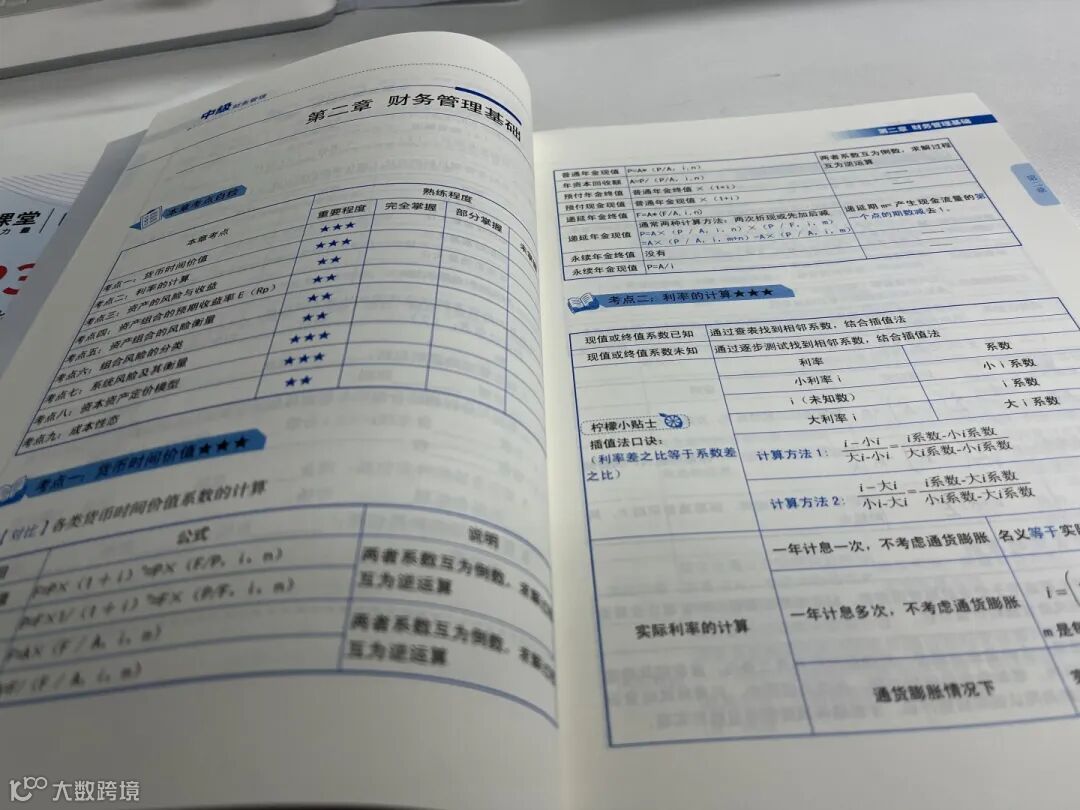 课堂
力量
3
中级 财务管理
第二章 财务管理基础
本章考点自检
本章考点
重要程度
熟练程度
完全掌握
部分掌握
考点一：货币时间价值 ★★★
考点二：利率的计算 ★★★
考点三：资产的风险与收益 ★★
考点四：资产组合的预期收益率E（Rp） ★★
考点五：资产组合的风险衡量 ★★
考点六：组合风险的分类 ★★
考点七：系统风险及其衡量 ★★★
考点八：资本资产定价模型 ★★★
考点九：成本性态 ★★
考点一：货币时间价值★★★
【对比】各类货币时间价值系数的计算
公式
说明
F=P×（1＋i）ⁿ=P×（F/P，i，n）
两者系数互为倒数，求解过程
互为逆运算
P=F×1/（1＋i）ⁿ=F×（P/F，i，n）
F=A×（F/A，i，n）
两者系数互为倒数，求解过程
互为逆运算
A=F/（F/A，i，n）
第二章 财务管理基础
第二章
普通年金现值 P=A*（P/A，i，n）
两者系数互为倒数，求解过程
互为逆运算
年资本回收额 A=P/（P/A，i，n）
预付年金终值 普通年金终值×（1+i）
预付现金现值 普通年金现值×（1+i）
递延年金终值 F=A*(F/A,i,n)
递延年金现值
通常两种计算方法：两次折现或先加后减
=A×（P/A，i，n）×（P/F，i，m）
=A×（P/A，i，m+n）-A×（P/A，i，m）
递延期m=产生现金流量的第
一个点的期数减去1。
永续年金终值 没有 —
永续年金现值 P=A/i —
考点二：利率的计算★★★
现值或终值系数已知 通过查表找到相邻系数，结合插值法
现值或终值系数未知 通过逐步测试找到相邻系数，结合插值法
利率 系数
小利率i 小i系数
i（未知数） i系数
大利率i 大i系数
柠檬小贴士
插值法口诀：
（利率差之比等于系数差
之比）
计算方法1：(i-小i)/(大i-小i)=(i系数-小i系数)/(大i系数-小i系数)
计算方法2：(i-大i)/(小i-大i)=(i系数-大i系数)/(小i系数-大i系数)
实际利率的计算
一年计息一次，不考虑通货膨胀 名义等于实际
一年计息多次，不考虑通货膨胀
i=(
m是每
通货膨胀情况下
大数跨境